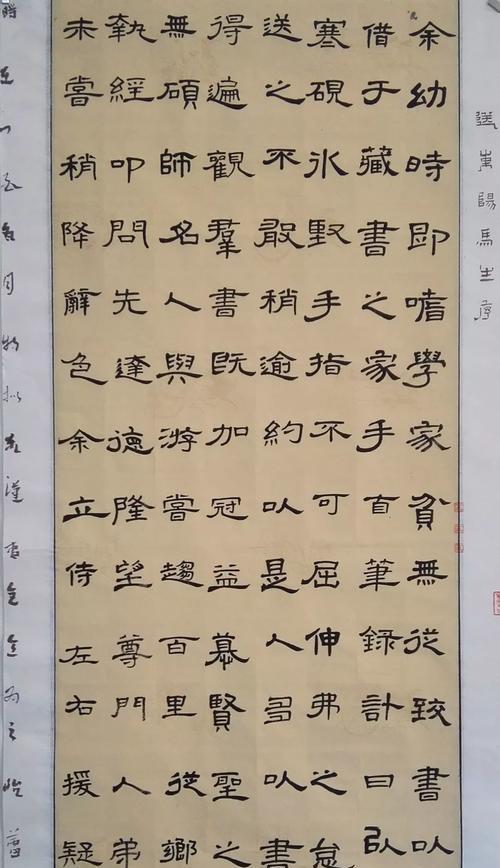 送東陽馬生序
余幼時即嗜學家貧無從致書以
借于藏書之家手自筆錄計日以
寒硯冰堅手指不可屈伸弗之怠
送之不敢稍逾約以是人多以書
得遍觀羣書既加冠益慕賢聖之
無碩師名人與游嘗趨百里從鄉
執經叩問先達德隆望尊門人弟
未嘗稍降辭色余立侍左右援疑